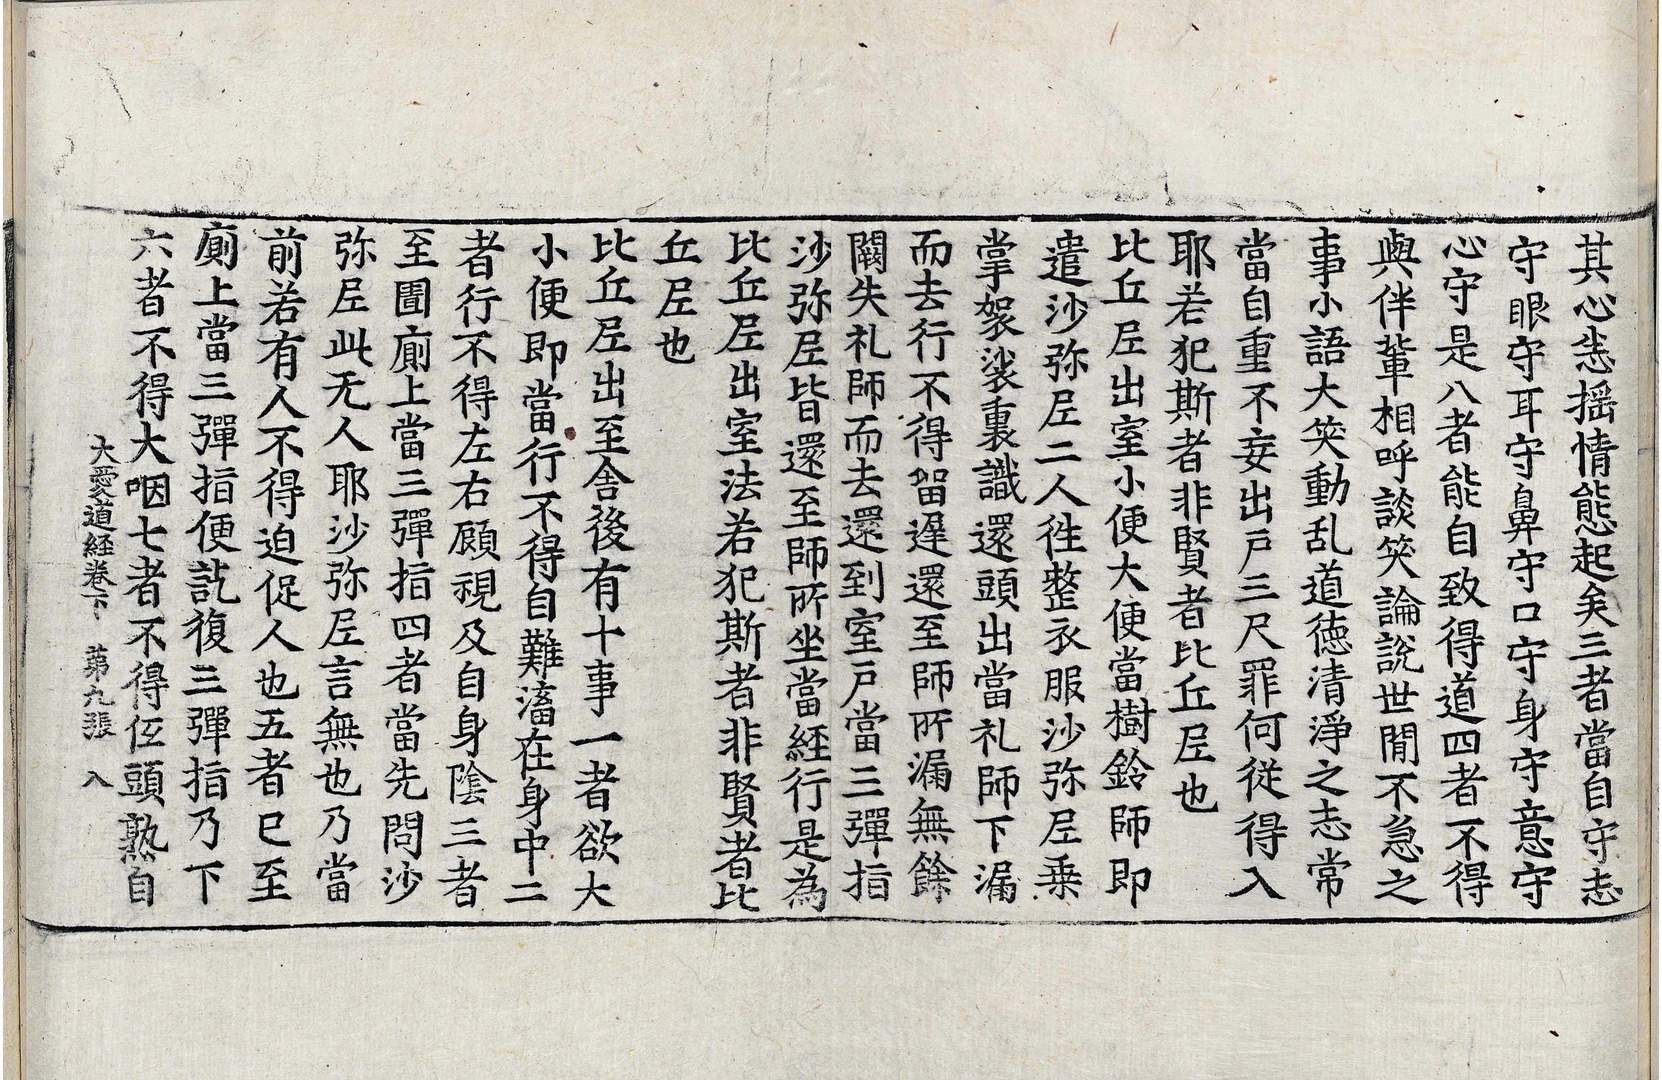 其心恙揺情態起矣三者當自守志
守眼守耳守鼻守口守身守意守
心守是八者能自致得道四者不得
與伴輩相呼談笑論說世閒不急之
事小語大笑動乱道徳清淨之志常
當自重不妄出戸三尺罪何從得入
耶若犯斯者非賢者比丘𡰱也
比丘𡰱出室小便大便當樹鈴師即
遣沙弥𡰱二人徃整衣服沙弥𡰱乗
掌袈裟裏識還頭出當礼師下漏
而去行不得留遅還至師所漏無餘
闕失礼師而去還到室戸當三彈指
沙弥𡰱皆還至師所坐當経行是為
比丘𡰱出室法若犯斯者非賢者比
丘𡰱也
比丘𡰱出至舎後有十事一者欲大
小便即當行不得自難濇在身中二
者行不得左右顧視及自身陰三者
至圊廁上當三彈指四者當先問沙
弥𡰱此无人耶沙弥𡰱言無也乃當
前若有人不得迫促人也五者已至
廁上當三彈指便訖復三彈指乃下
六者不得大咽七者不得伍頭熟自
大愛道経巻下　苐九張　入